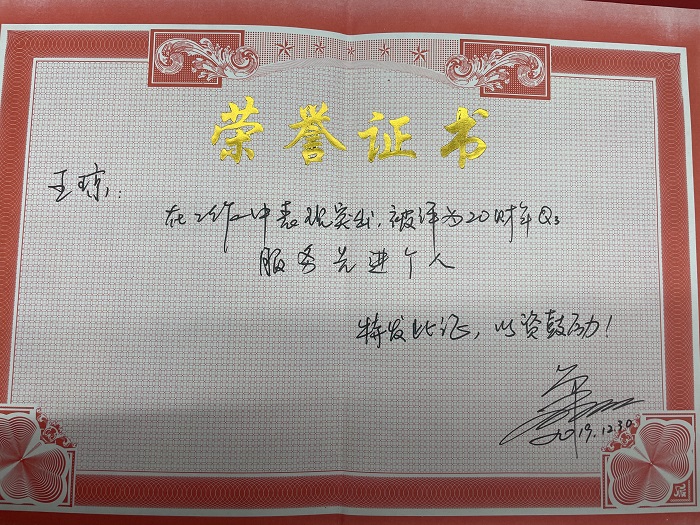 荣誉证书
王琼：
在工作中表现突出，被评为20财年Q3
服务先进个人
特发此证，以资鼓励！
2019.12.30